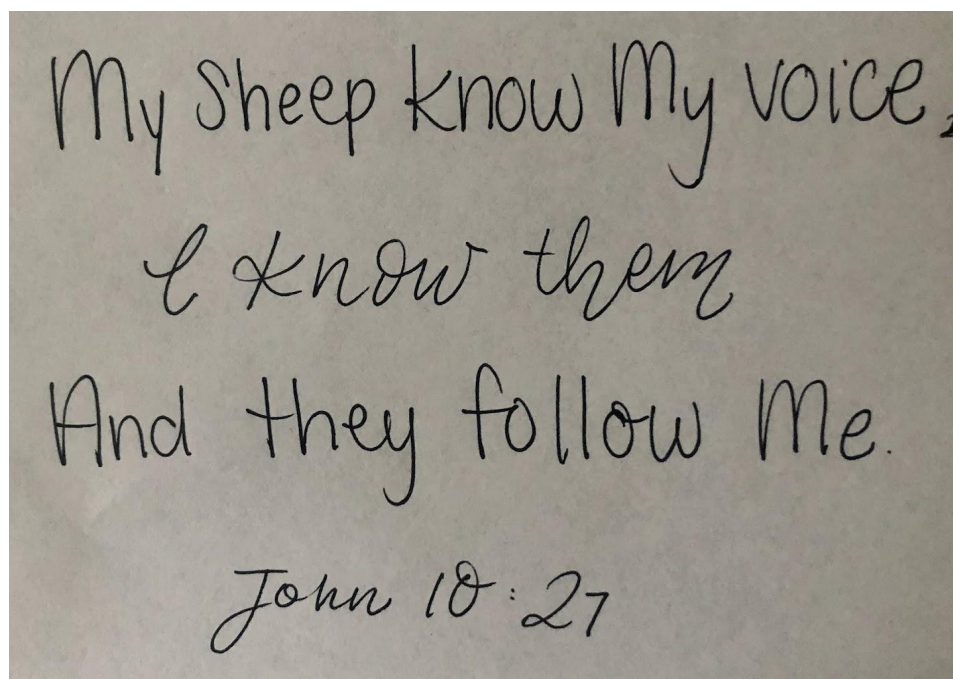 My Sheep know My voice,
I know them
And they follow Me.
John 10:27